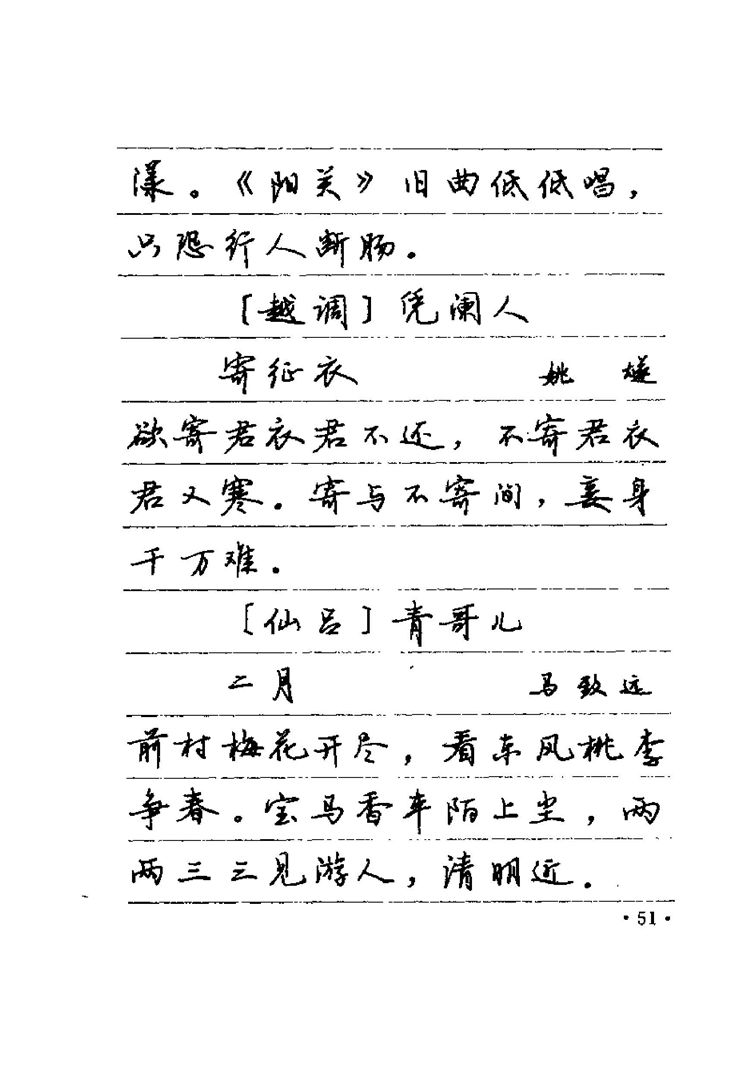 漾。《阳关》旧曲低低唱，
只恐行人断肠。
[越调]凭阑人
寄征衣 姚燧
欲寄君衣君不还，不寄君衣
君又寒。寄与不寄间，妾身
千万难。
[仙吕]青哥儿
二月 马致远
前村梅花开尽，看东风桃李
争春。宝马香车陌上尘，两
两三三见游人，清明近。
·51·